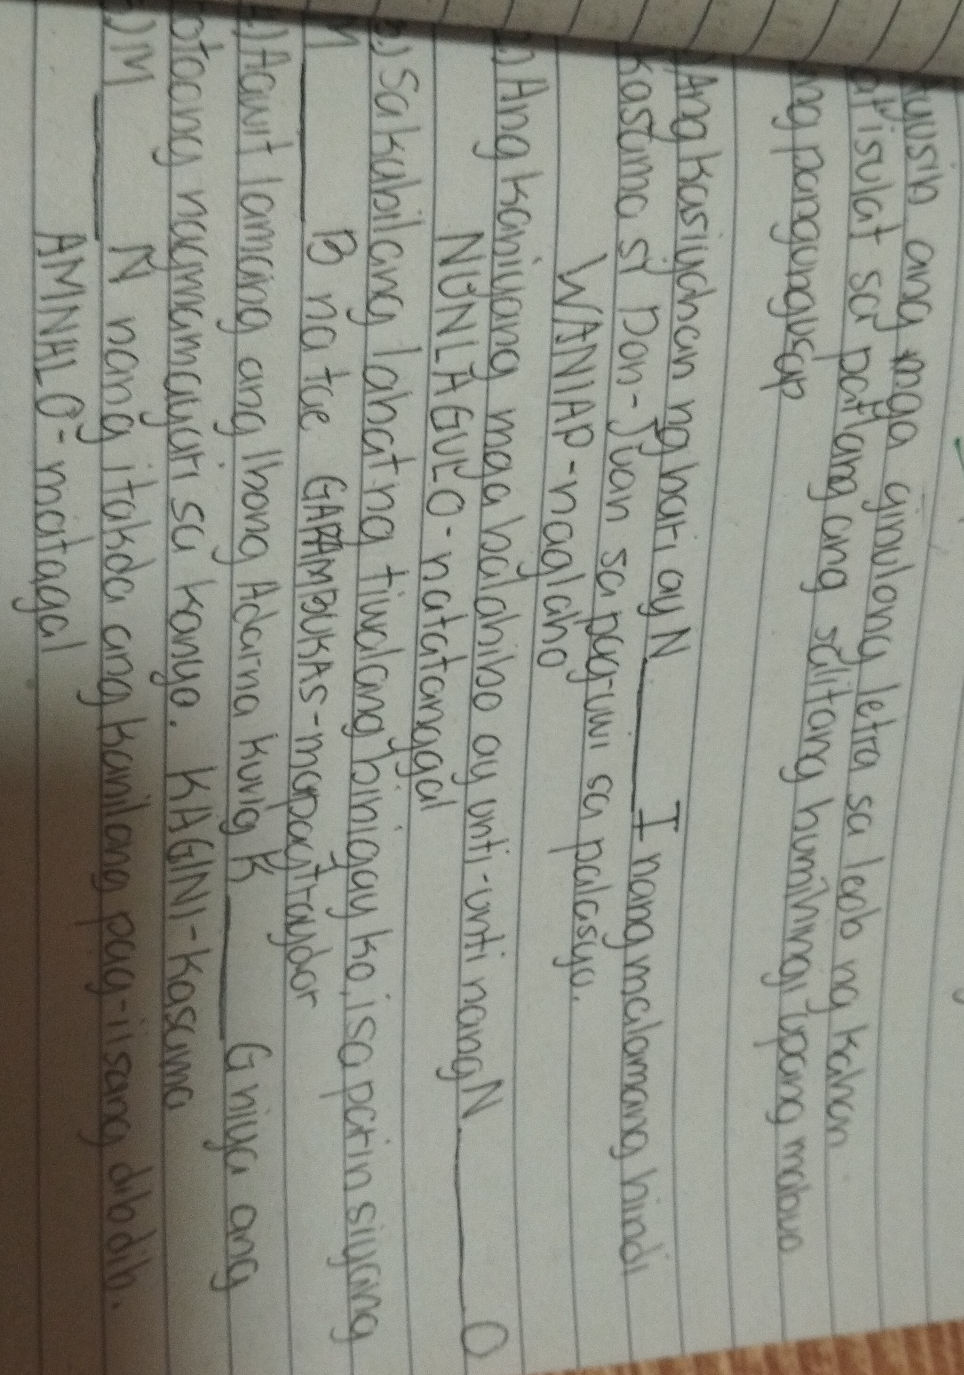 ang mga ginulong letra sa loob ng kahon
isulat sa patlang ang salitang humihingi upang mabuo
ng pangungusap
Ang kasiyahan ng hari ay N______I nang malamang hindi
kasama si Don-Juan sa paguwi sa palasyo.
WANIAP-naglaho
Ang kaniyang mga balahibo ay unti-unti nang N______O
NUNLAGULO-natatanggal
Sa kabilang labat ng tiwalang binigay ko, isa parin siyang
M______B na tae GARAMBUKAS-mapagtraydor
Awit lamang ang Ibong Adarna kuvig K______G niya ang
otoong nagmamayari sa kanya. KAGINI-kasama
M______N nang itakda ang kanilang pag-iisang dibdib.
AMNHLO-matagal